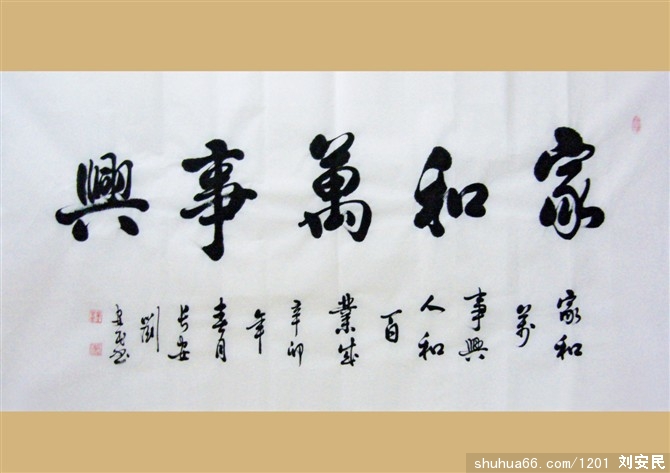 家和萬事興
家和
萬
事興
人和
百
業成
辛卯
年
春月
長安
劉
安民書
shuhua66.com/1201 刘安民